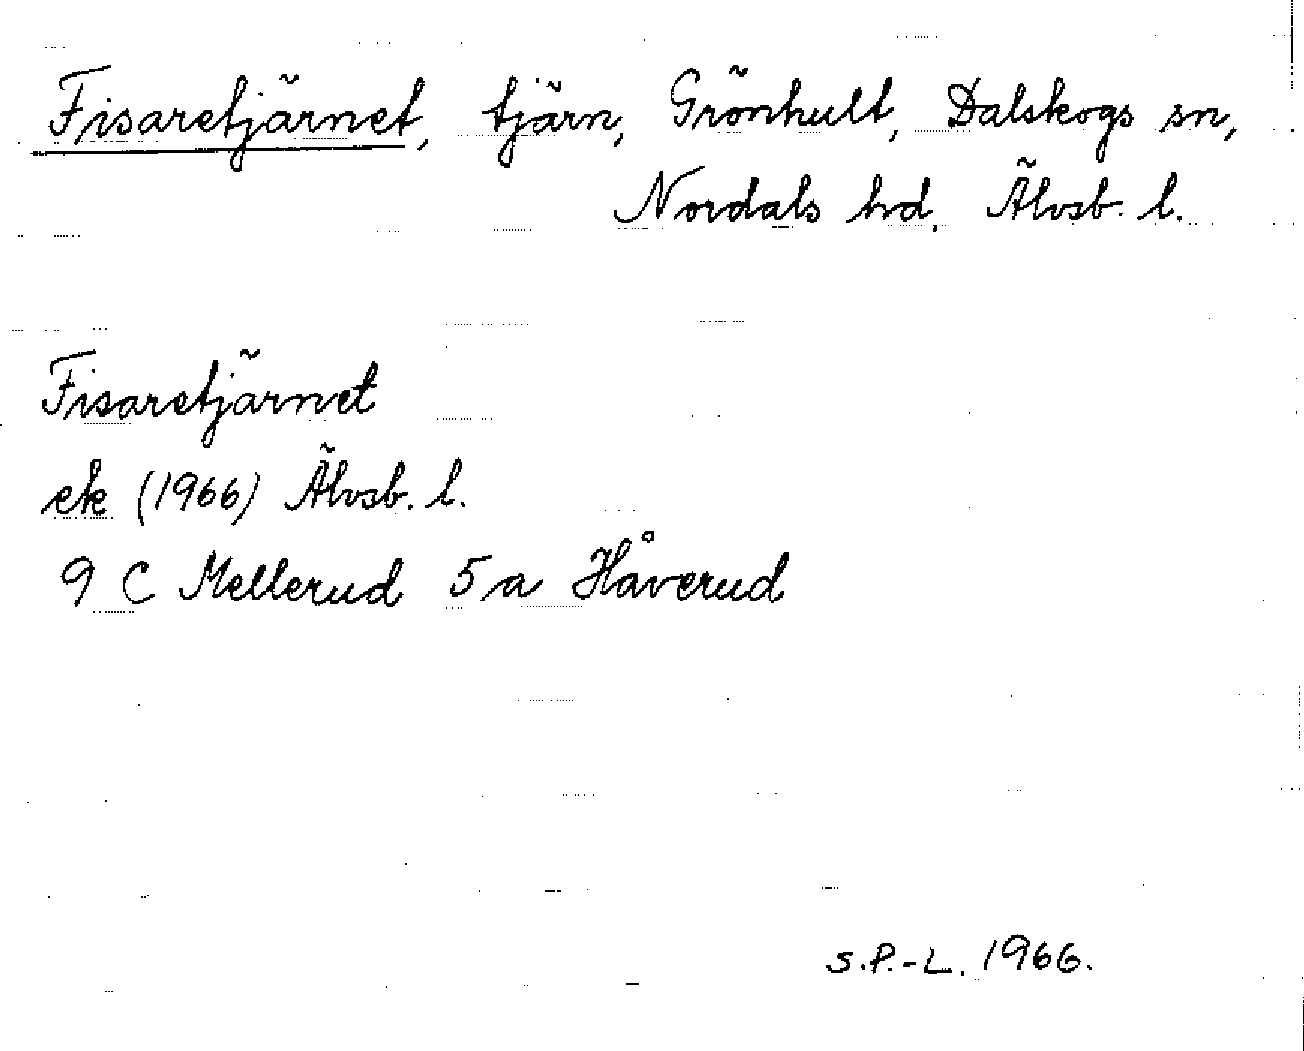 Fisaretjärnet, tjärn, Grönhult, Dalskogs sn,
Nordals hd, Älvsb. l.
Fisaretjärnet
ek (1966) Älvsb. l.
9 C Mellerud 5a Håverud
S.P.-L. 1966.